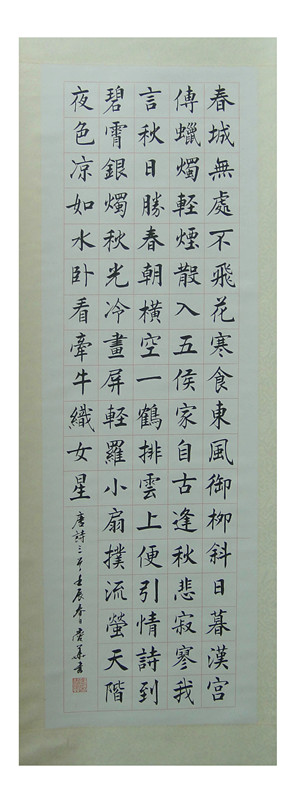 春城無處不飛花寒食東風御柳斜日暮漢宮
傳蠟燭輕煙散入五侯家自古逢秋悲寂寥我
言秋日勝春朝橫空一鶴排雲上便引情詩到
碧霄銀燭秋光冷畫屏輕羅小扇撲流螢天階
夜色凉如水卧看牽牛織女星
唐詩三首壬辰春書